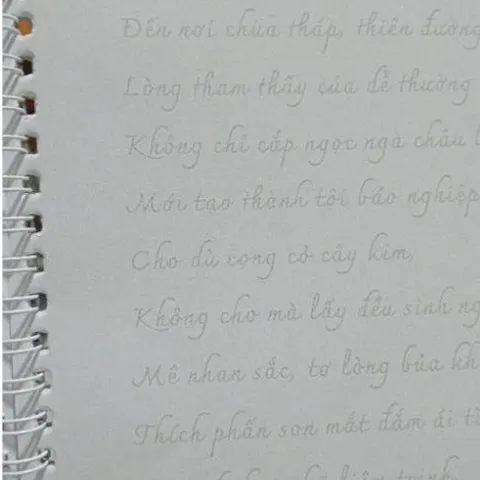 Đến nơi chùa tháp, thiên đường
Lòng tham thấy của dễ thường
Không chỉ cắp ngọc ngà châu
Mới tạo thành tội báo nghiệp
Cho dù cọng cỏ cây kim,
Không cho mà lấy đều sinh
Mê nhan sắc, tơ lòng bủa
Thích phấn son mắt đắm ái